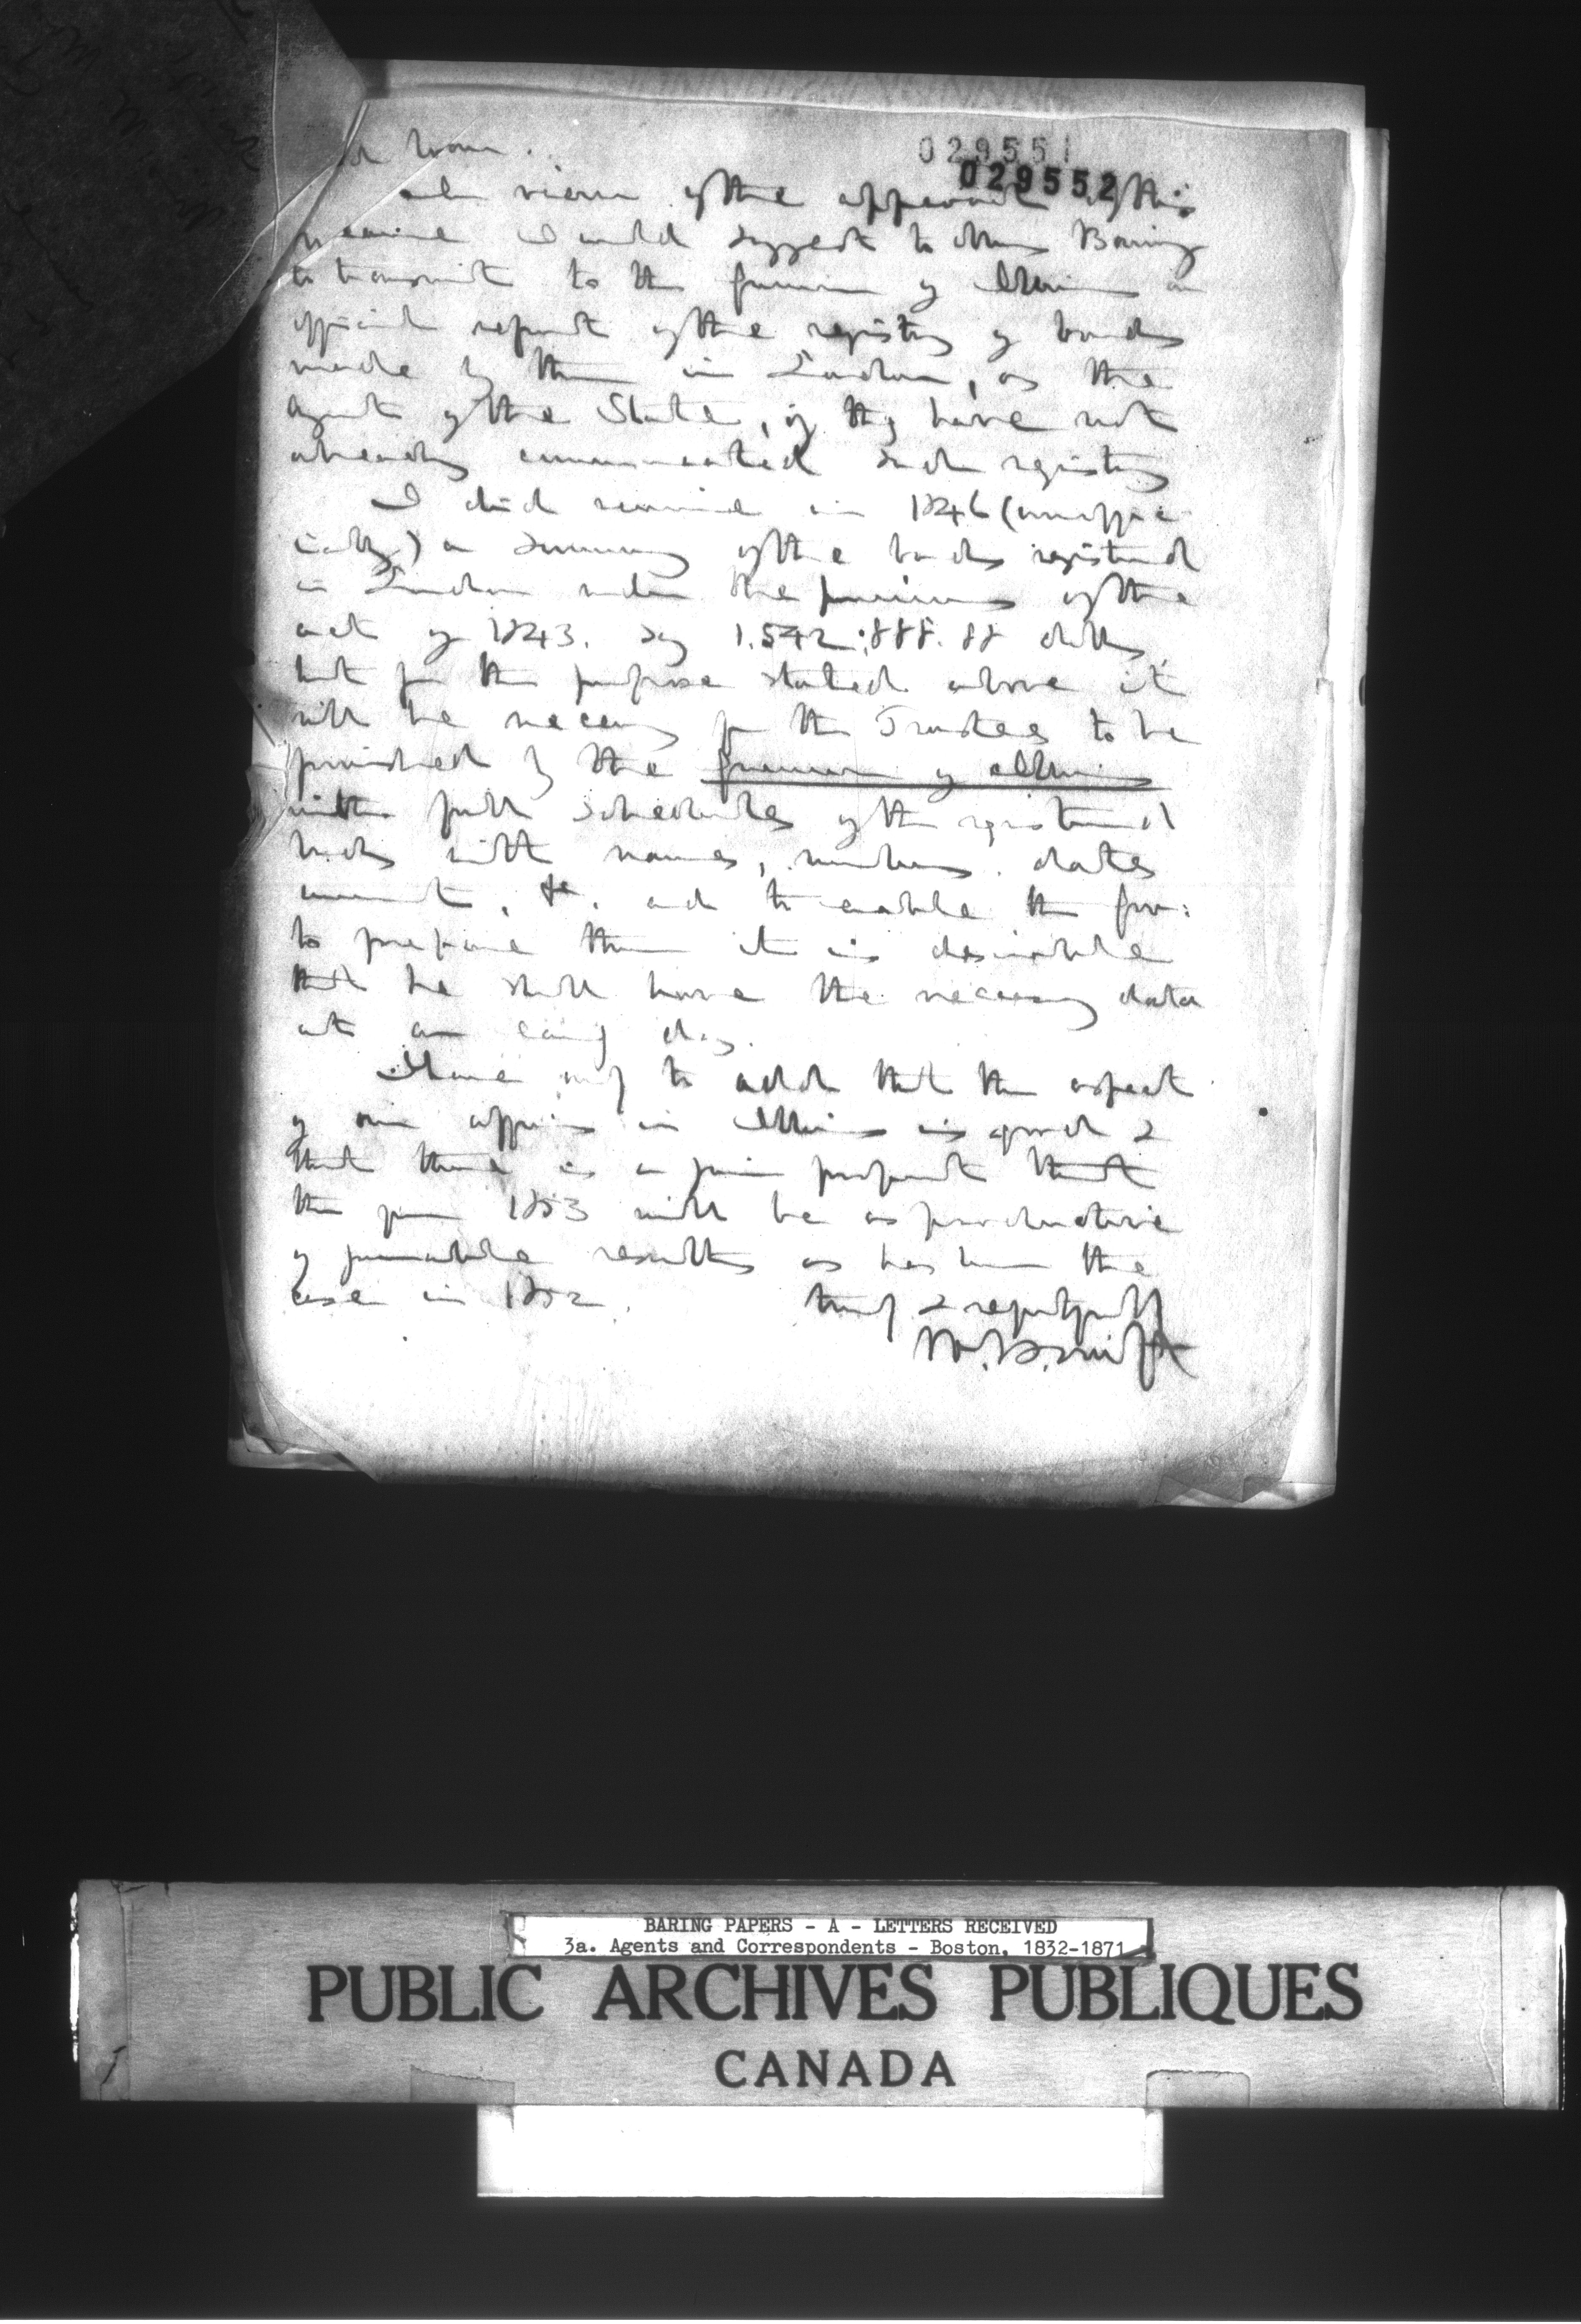 029551
029552
In view of the approval of this
measure I would suggest to Messrs Baring
to transmit to the Governor of Illinois an
official report of the registry of bonds
made by them in London, as the
Agents of the State, if they have not
already communicated such registry
I did receive in 1846 (unoffic-
ially) a summary of the bonds registered
in London under the provisions of the
act of 1843. say 1.542.888.88 dolls,
but for the purpose stated above it
will be necessary for the Trustees to be
furnished by the Governor of Illinois
with full schedules of the registered
bonds with names, numbers, dates
amount, &c. and to enable the Gov:
to prepare them it is desirable
that he shall have the necessary data
at an early day.
I have only to add that the aspect
of our affairs in Illinois is good &
that there is a fair prospect that
the year 1853 will be as productive
of favorable results as has been the
case in 1852.
truly & respectfully
W. H. Swift
BARING PAPERS - A - LETTERS RECEIVED
3a. Agents and Correspondents - Boston, 1832-1871
PUBLIC ARCHIVES PUBLIQUES
CANADA